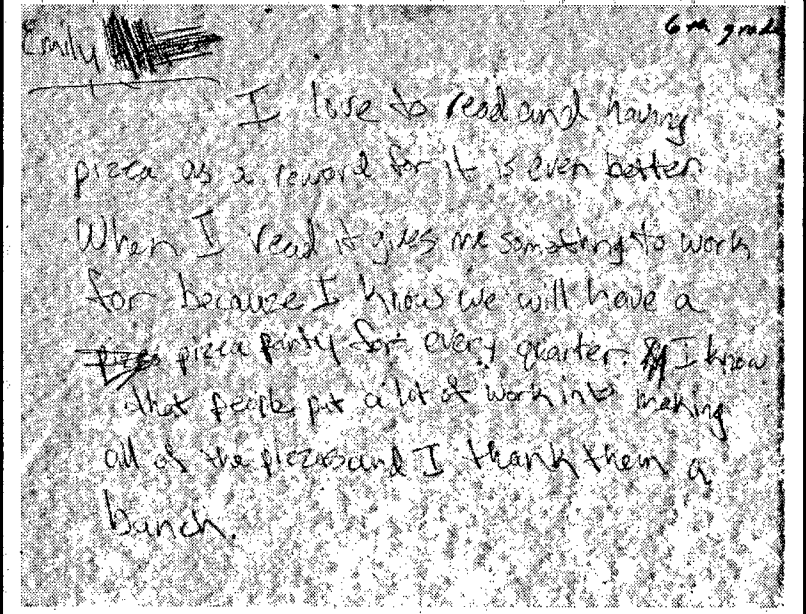 Emily
6th grade
I love to read and having
pizza as a reward for it is even better.
When I read it gives me something to work
for because I know we will have a
pizza party for every quarter. I know
that people put a lot of work into making
all of the pizzas and I thank them a
bunch.